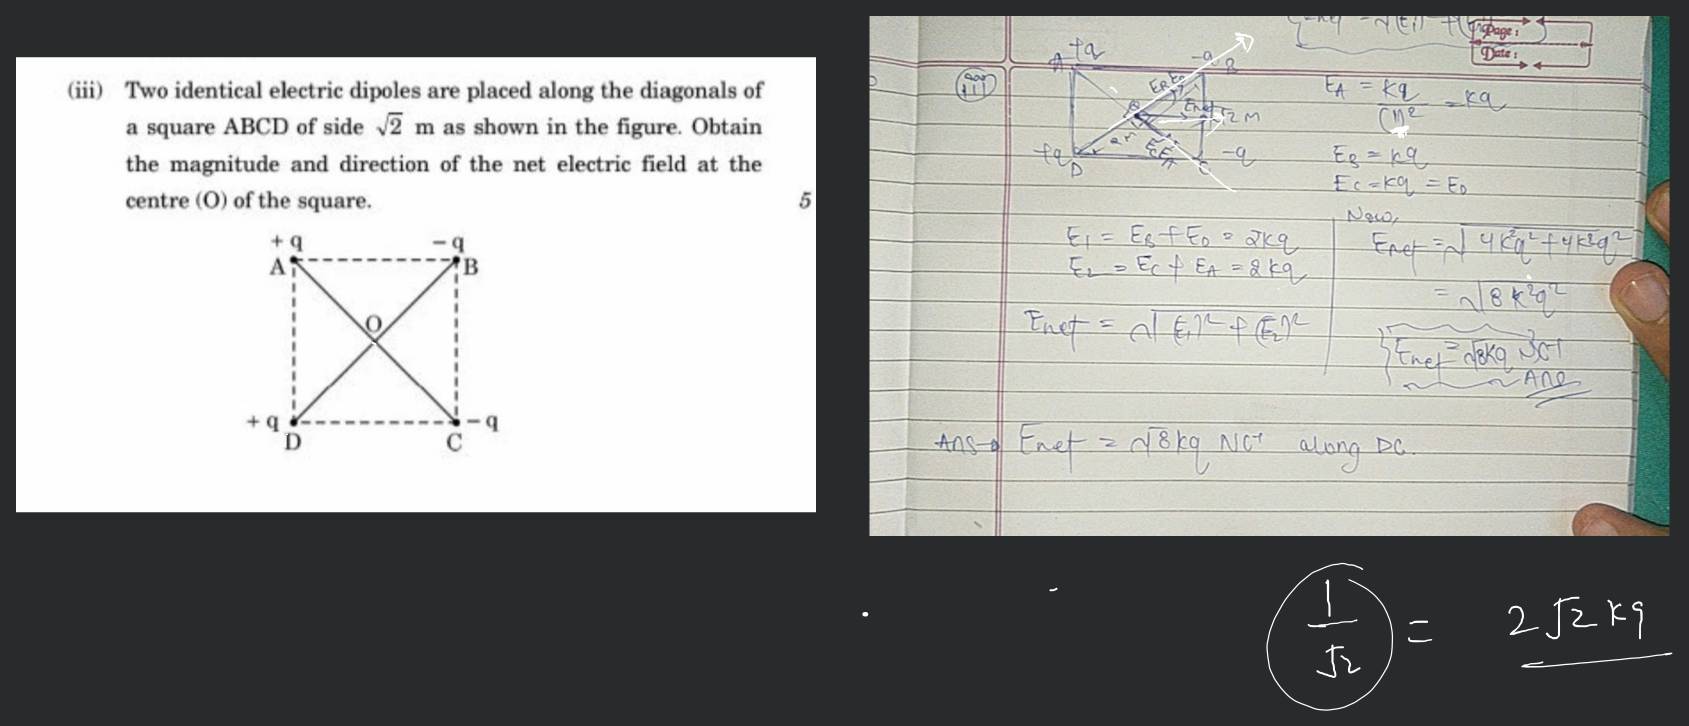 (iii) Two identical electric dipoles are placed along the diagonals of
a square ABCD of side √2 m as shown in the figure. Obtain
the magnitude and direction of the net electric field at the
centre (O) of the square.
5
+ q
− q
A
B
O
+ q
− q
D
C
Page:
Date:
+q
-q
A
B
√2 M
+q
-q
D
C
E_A = kq/(1)² = kq
E_B = kq
E_C = kq = E_D
E_1 = E_B + E_D = 2kq
E_2 = E_C + E_A = 2kq
E_net = √(E_1)² + (E_2)²
Now,
E_net = √4k²q² + 4k²q²
= √8k²q²
E_net = √8kq NC⁻¹
Ans
Ans→ E_net = √8kq NC⁻¹ along DC.
1/√2 = 2√2 kq